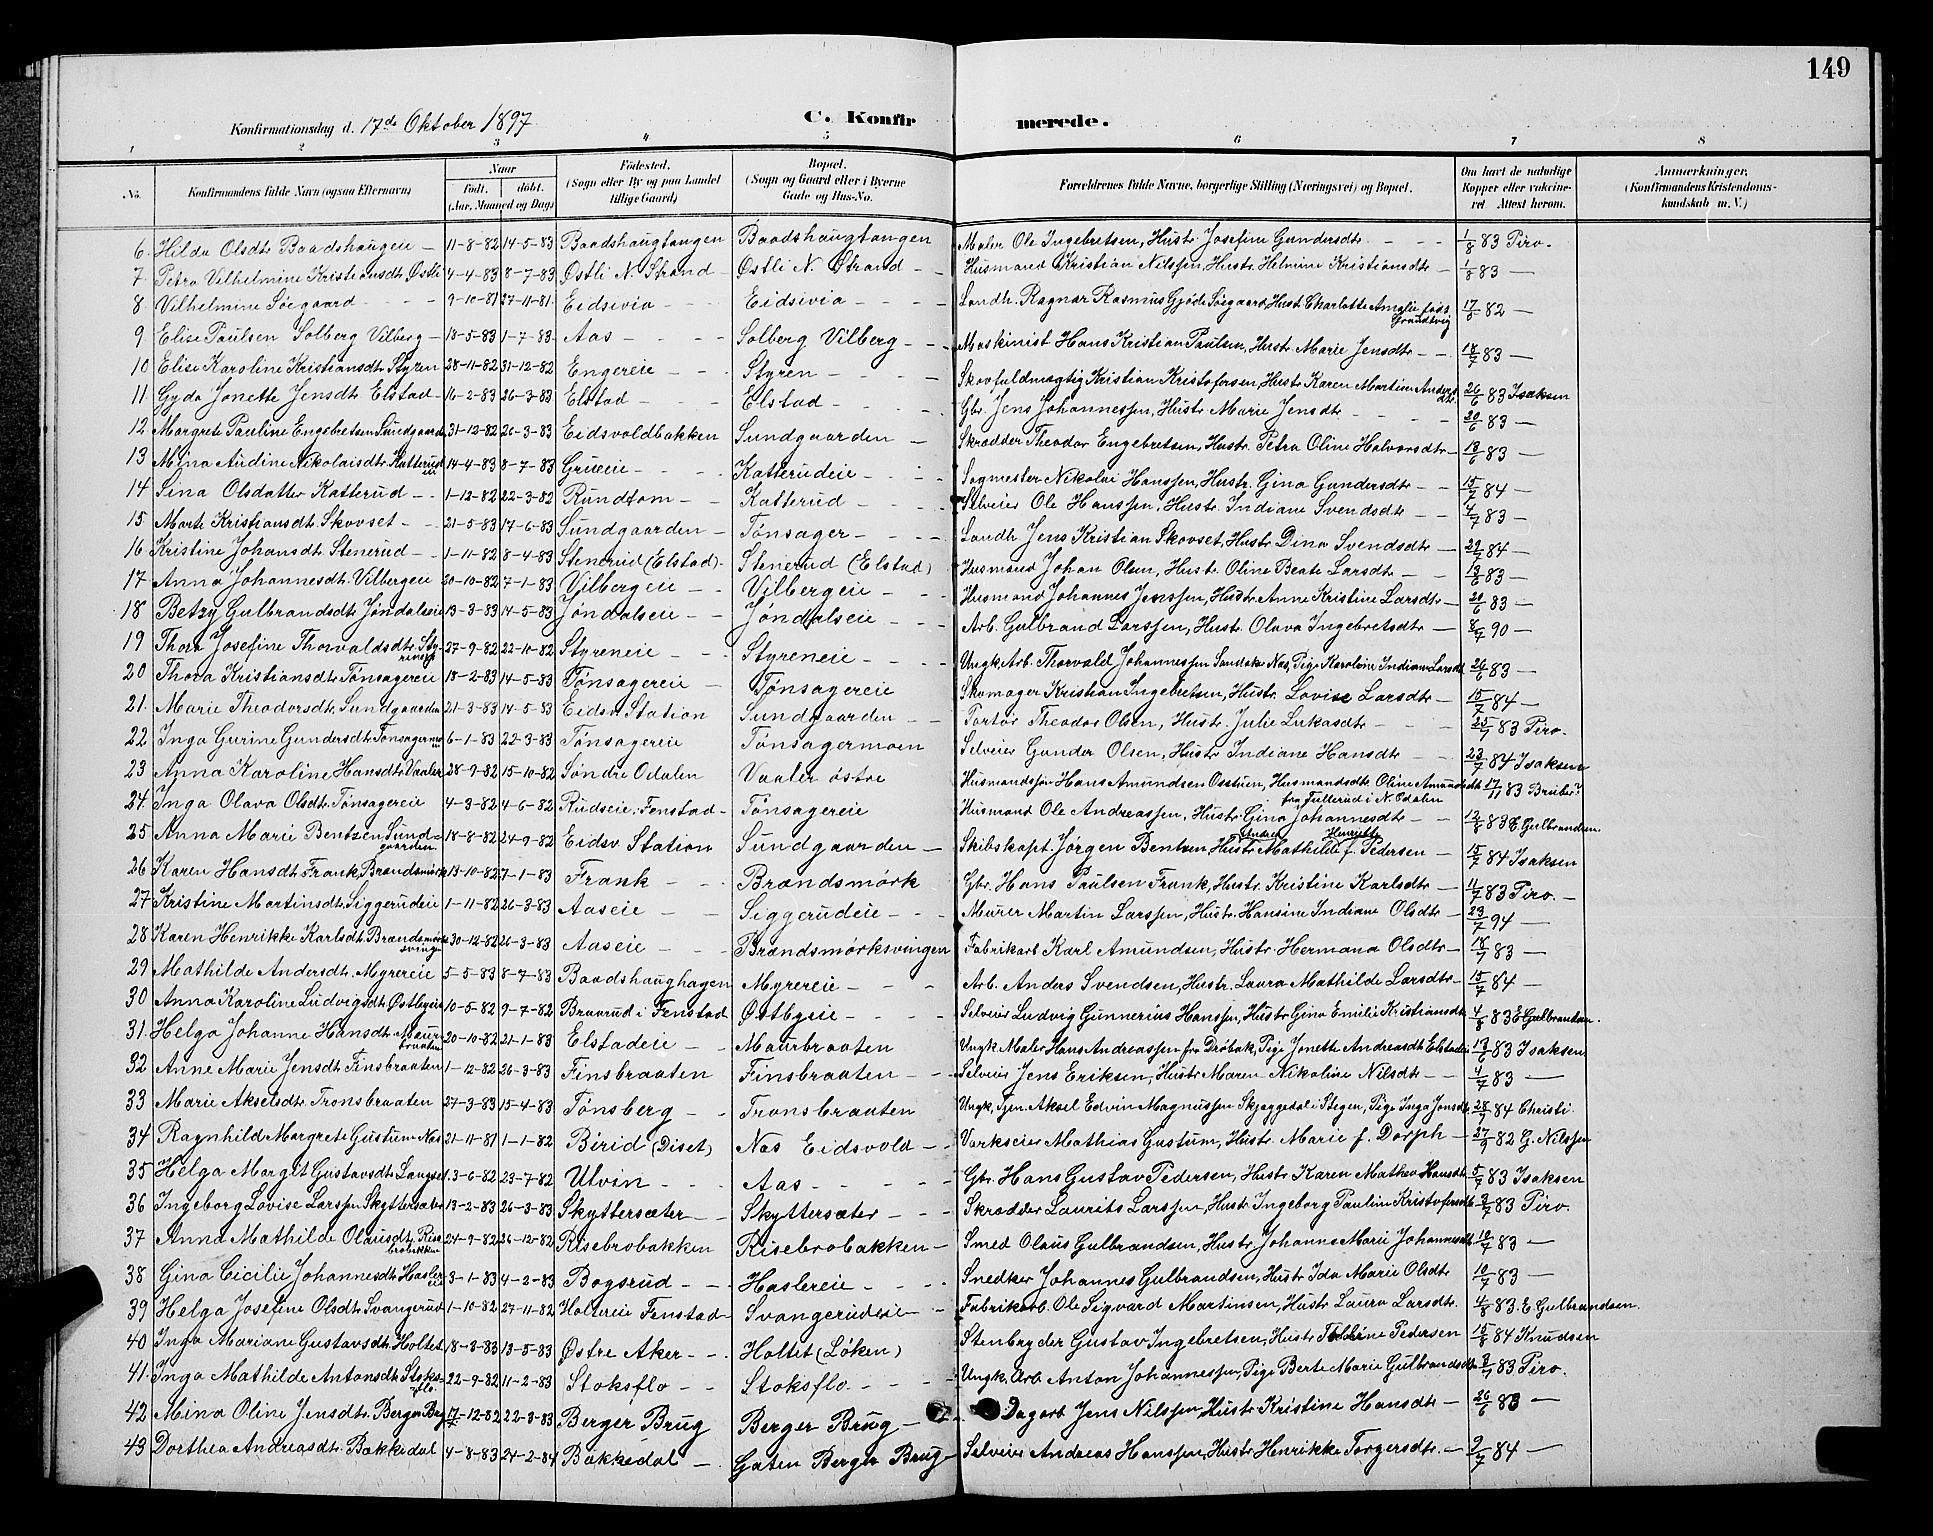 149
Konfirmationsdag d. 17de Oktober 1897 C. Konfirmerede.
1 2 3 4 5 6 7 8
No. Konfirmandens fulde Navn (ogsaa Efternavn) Naar født. døbt. (Aar, Maaned og Dag) Fødested. (Sogn eller By og paa Landet tillige Gaard) Bopæl. (Sogn og Gaard eller i Byerne Gade og Hus-No. Forældrenes fulde Navne, borgerlige Stilling (Næringsvei) og Bopæl. Om havt de naturlige Kopper eller vakcineret Attest herom. Anmerkninger, (Konfirmandens Kristendomskundskab m. V.)
6 Hilda Olsdtr Baadshaugeie – 11-8-82 14-5-83 Baadshaugtangen Baadshaugtangen Maler Ole Ingebretsen, Hustr. Josefine Gundersdtr. 1/8 83 Piro.
7 Petra Vilhelmine Kristiansdtr. Østli 4-4-83 8-7-83 Østli N. Strand Østli N. Strand Husmand Kristian Nilssen, Hustr. Helmine Kristiansdtr – 1/8 83 —
8 Vilhelmine Søegaard 9-10-81 27-11-81 Eidsivia Eidsivia Landh. Ragnar Rasmus Gjøde Søegaard, Hust. Charlotte Amalie født Grundtvig 17/6 82 —
9 Elise Paulsen Solberg Vilberg – 18-5-83 1-7-83 Aas Solberg Vilberg Maskinist Hans Kristian Paulsen, Hustr. Marie Jensdtr 18/7 83 —
10 Elise Karoline Kristiansdtr Styren 28-11-82 31-12-82 Engereie Styren Skovfuldmægtig Kristian Kristofersen, Hustr. Karen Martine Andersdtr. 26/6 83 Isaksen
11 Gyda Jonette Jensdtr Elstad 16-2-83 26-3-83 Elstad Elstad Gbr. Jens Johannessen, Hustr. Marie Jensdtr 20/6 83 —
12 Margrete Pauline Engebretsen Sundgaarden 31-12-82 26-3-83 Eidsvoldbakken Sundgaarden Skrædder Theodor Engebretsen, Hustr. Petra Oline Halvorsdtr – 13/6 83 —
13 Mina Audine Nikolaisdtr. Katterudeie 14-4-83 8-7-83 Grueeie Katterudeie Sagmester Nikolai Hanssen, Hustr. Gina Gundersdtr 15/7 84 —
14 Sina Olsdatter Katterud 1-12-82 22-3-82 Rundtom Katterud Selveier Ole Hanssen, Hustr. Indiane Svendsdtr 4/7 83 —
15 Marte Kristiansdtr. Skovset 21-5-83 17-6-83 Sundgaarden Tønsager Landh. Jens Kristian Skovset, Hustr. Dina Svendsdtr 29/7 84 —
16 Kristine Johansdtr Stenerud 1-11-82 8-4-83 Stenerud (Elstad) Stenerud (Elstad) Husmand Johan Olsen, Hustr. Oline Beate Larsdtr 13/6 83 —
17 Anna Johannesdtr. Vilbergeie 20-10-82 7-1-83 Vilbergeie Vilbergeie Husmand Johannes Jenssen, Hustr. Anne Kristine Larsdtr 20/6 83 —
18 Betzy Gulbrandsdtr. Jøndalseie 13-3-83 14-5-83 Jøndalseie Jøndalseie Arb. Gulbrand Larssen, Hustr. Olava Ingebretsdtr 8/7 90 —
19 Thora Josefine Thorvaldsdtr. Styreneie 27-9-82 22-10-82 Styreneie Styreneie Ungk. Arb. Thorvald Johannessen Sandaker Nas, Pige Karoline Indiane Larsdtr 26/6 83 —
20 Thora Kristiansdtr. Tønsagereie 18-2-83 14-5-83 Tønsagereie Tønsagereie Skomager Kristian Ingebretsen, Hustr. Lovise Larsdtr 15/7 84 —
21 Marie Theodorsdtr. Sundgaarden 21-3-83 14-5-83 Eidsv. Station Sundgaarden Portør Theodor Olsen, Hustr. Julie Lukasdtr 25/7 83 Piro.
22 Inga Gurine Gundersdtr. Tønsagermoen 6-1-83 22-3-83 Tønsagereie Tønsagermoen Selveier Gunder Olsen, Hustr. Indiane Hansdtr 23/7 84 Isaksen
23 Anna Karoline Hansdtr. Vaaler 28-9-82 15-10-82 Søndre Odalen Vaaler østre Husmandssøn Hans Amundsen Osstuen, Husmandsdtr. Oline Amundsdtr fra Fullerud i N. Odalen 17/11 83
24 Inga Olava Olsdtr. Tønsagereie 4-3-82 4-6-82 Rudseie. Fenstad Tønsagereie Husmand Ole Andreassen, Hustr. Gina Johannesdtr 12/8 83 E. Gulbrandsen.
25 Anna Marie Bentzen Sundgaarden 18-8-82 24-9-82 Eidsv. Station Sundgaarden Skibskapt. Jørgen Bentzen, Hustr. Andrea Mathilde Henriette f. Pedersen 15/7 84 Isaksen
26 Karen Hansdtr. Frank, Brandsmørk 13-10-82 7-1-83 Frank Brandsmørk Gbr. Hans Paulsen Frank, Hustr. Kristine Karlsdtr 11/7 83 Piro. –
27 Kristine Martinsdtr. Siggerudeie 1-11-82 26-3-83 Aaseie Siggerudeie Murer Martin Larssen, Hustr. Hansine Indiane Olsdtr 23/7 94 —
28 Karen Henrikke Karlsdtr. Brandsmørksvingen 30-12-82 26-3-83 Aaseie Brandsmørksvingen Fabrikarb. Karl Amundsen, Hustr. Hermana Olsdtr 18/7 83 —
29 Mathilde Andersdtr. Myrereie 5-5-83 8-7-83 Baadshaughagen Myrereie Arb. Anders Svendsen, Hustr. Laura Mathilde Larsdtr 15/7 84 —
30 Anna Karoline Ludvigsdtr. Østbyeie 10-5-82 9-7-82 Braarud i Fenstad Østbyeie Selveier Ludvig Gunnerius Hanssen, Hustr. Gina Emilie Kristiansdtr 4/8 83 E. Gulbrandsen.
31 Helga Johanne Hansdtr. Maurbraaten 20-10-82 21-1-83 Elstadeie Maurbraaten Ungk. Maler Hans Andreassen fra Drøbak, Pige Jonette Andreasdtr Elstadeie 13/6 83 Isaksen
32 Anne Marie Jensdtr. Finsbraaten 1-12-82 26-3-83 Finsbraaten Finsbraaten Selveier Jens Eriksen, Hustr. Maren Nikoline Nilsdtr 4/7 83 —
33 Marie Akselsdtr. Tronsbraaten 27-3-83 15-4-83 Tønsberg Tronsbraaten Ungk. Tjen. Aksel Edvin Magnussen Skjæggedal i Stigen, Pige Inga Jonsdtr. 28/7 84 Christi.
34 Ragnhild Margrete Gustum Nas 21-11-81 1-1-82 Birid (Diset) Nas Eidsvold Værkseier Mathias Gustum, Hustr. Marie f. Dorph 27/9 82 G. Nilssen
35 Helga Margit Gustavsdtr. Langset. 3-6-82 23-7-82 Utvin Aas Gbr. Hans Gustav Pedersen, Hustr. Karen Mathea Hansdtr 5/7 83 Isaksen
36 Ingeborg Lovise Larssen Skyttersæter 13-2-83 26-3-83 Skyttersæter Skyttersæter Skrædder Laurits Larssen, Hustr. Ingeborg Pauline Kristofersdtr 2/7 83 Piro.
37 Anna Mathilde Olausdtr. Risebrobakken 24-9-82 26-12-82 Risebrobakken Risebrobakken Smed Olaus Gulbrandsen, Hustr. Johanne Marie Johannesdtr 12/7 83 —
38 Gina Cicilie Johannesdtr. Haslereie 3-1-83 4-2-83 Bogsrud Haslereie Snedker Johannes Gulbrandsen, Hustr. Ida Marie Olsdtr 10/7 83 —
39 Helga Josefine Olsdtr. Svangerud 1-10-82 27-11-82 Holtereie Fenstad Svangerudeie Fabrikarb. Ole Sigvard Martinsen, Hustr. Laura Larsdtr. 4/8 83. E. Gulbrandsen.
40 Inga Mariane Gustavsdtr. Holtet 18-3-83 13-5-83 Østre Aker Holtet (Løken) Stenbryder Gustav Ingebretsen, Hustr. Pedersen 15/8 84 Knudsen
41. Inga Mathilde Antonsdtr. Stoksflo. 22-9-82 11-2-83 Stoksflo Stoksflo. Ungk. Arb. Anton Johannessen, Pige Berte Marie Gulbrandsdtr 2/7 83 Piro.
42 Mina Oline Jensdtr. Berger Brug 17-12-82 22-3-83 Berger Brug Berger Brug Dagarb. Jens Nilssen, Hustr. Kristine Hansdtr 26/6 83 —
43 Dorthea Andreasdtr. Bakkedal 4-8-83 24-2-84 Bakkedal Gaten Berger Brug Selveier Andreas Hanssen, Hustr. Henrikke Torgersdtr. 9/7 84 —